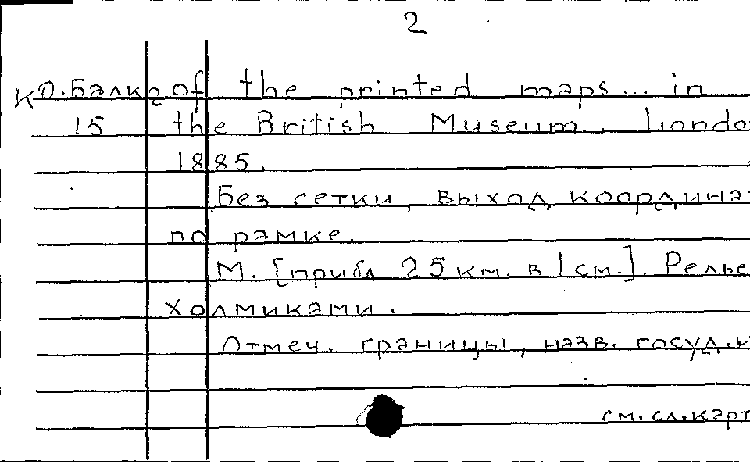 2
К О.Балк. of the printed maps... in
15 the British Museum. Londo
1885.
Без сетки, выход координа
по рамке.
М. [прибл 25 км. в 1 см.]. Релье
холмиками.
Отмеч. границы, назв. госуд.
см. сл. карт